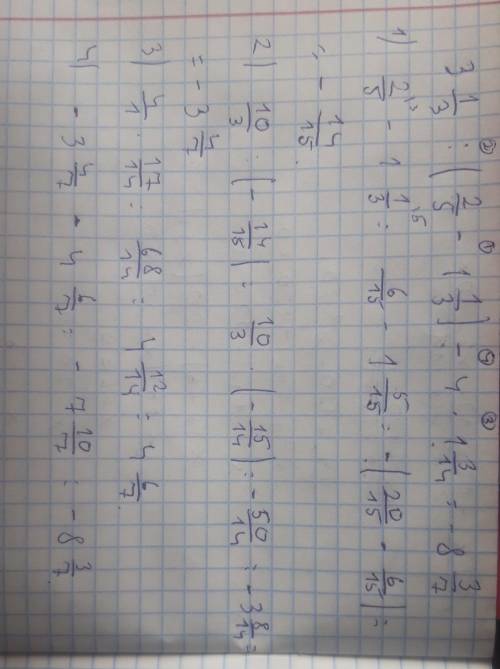 3 1/3 : (2/5 - 1 1/3) - 4 · 1 3/14 = - 8 3/7
1) 2/5 - 1 1/3 = 6/15 - 1 5/15 = - (20/15 - 6/15) =
= - 14/15
2) 10/3 : (- 14/15) = 10/3 · (- 15/14) = - 50/14 = - 3 8/14 =
= - 3 4/7
3) 4/1 · 17/14 = 68/14 = 4 12/14 = 4 6/7
4) - 3 4/7 - 4 6/7 = - 7 10/7 = - 8 3/7